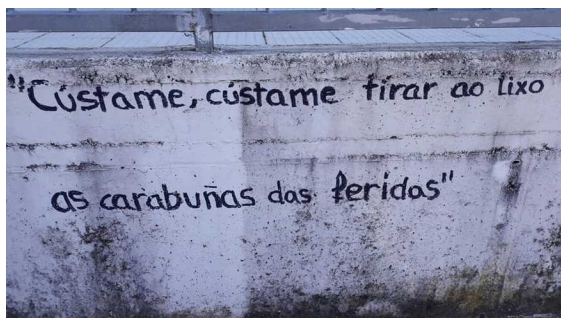 "Cústame, cústame tirar ao lixo
as carabuñas das feridas"